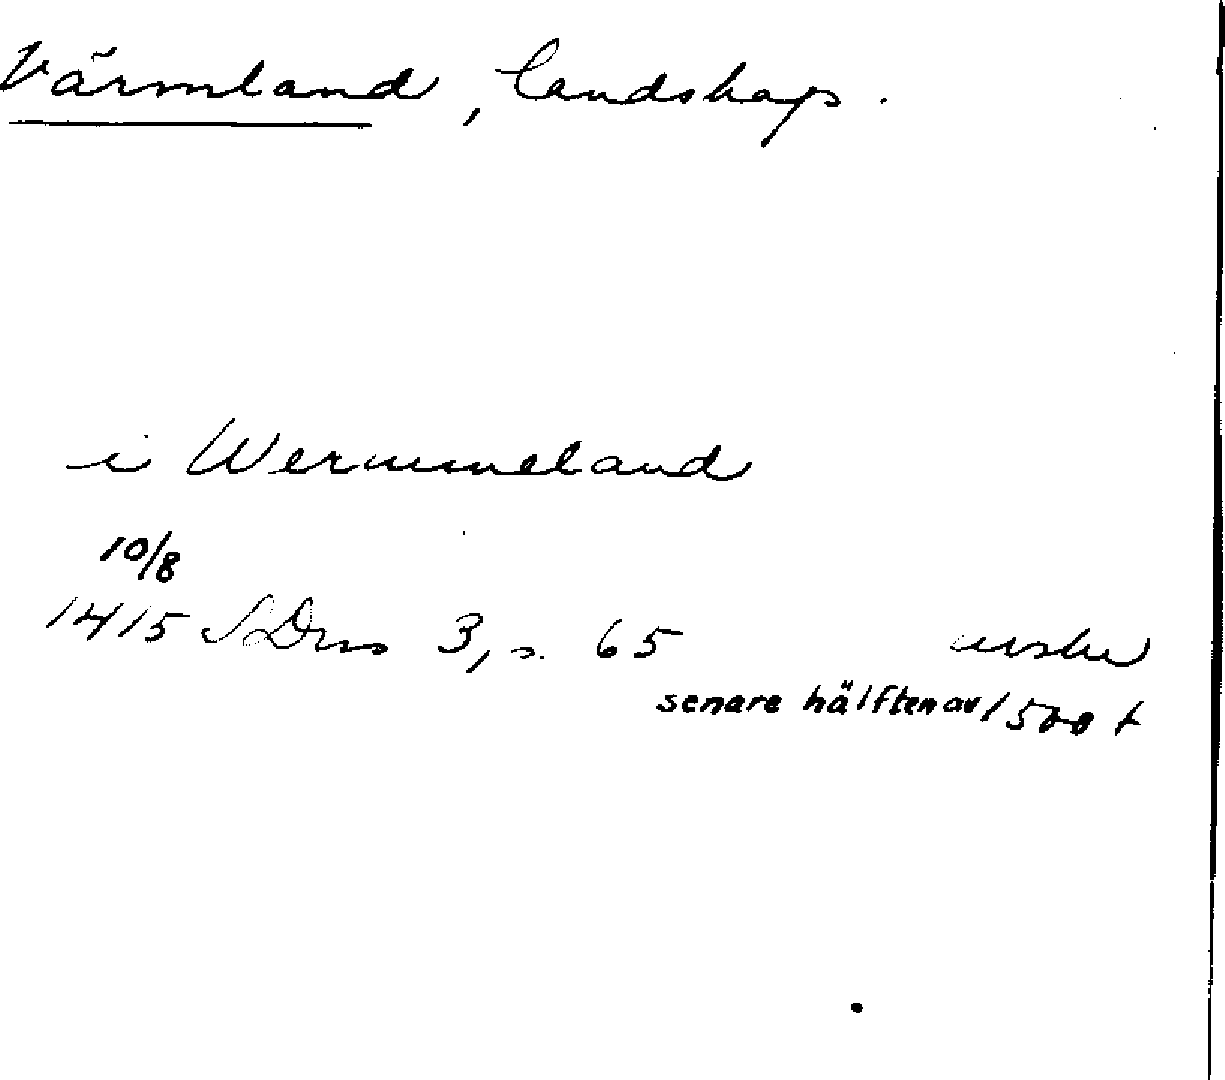 Värmland, landskap.
i Wermmeland
10/8
1415 SDns 3, s. 65 avskr
senare hälften av 1500 t